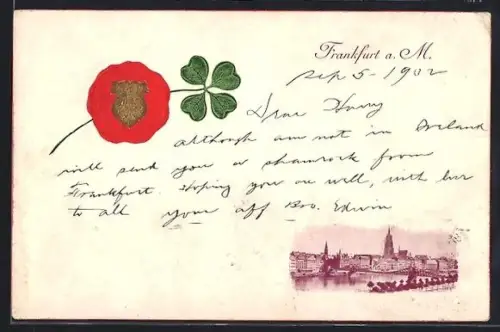 Frankfurt a. M.
Sep 5 - 1902
Dear Harry
although am not in Ireland
will send you a shamrock from
Frankfurt. Hoping you are well, with love
to all your aff Bro. Edwin